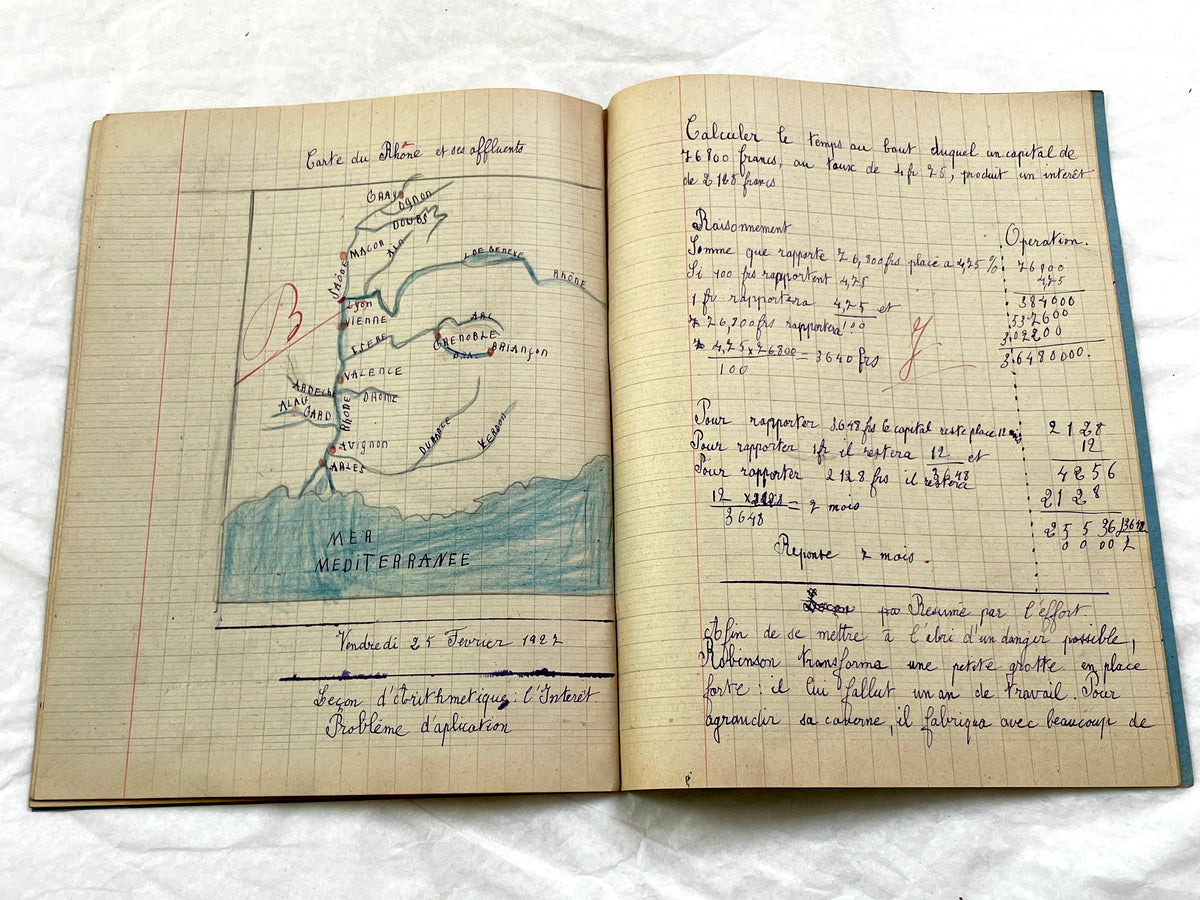 Carte du Rhône et ses affluents
GRAY
OGNON
DOUBS
MACON
AIN
SAÔNE
L DE GENEVE
RHÔNE
Lyon
VIENNE
ISERE
ARC
GRENOBLE
BRIANÇON
VALENCE
ARDECHE
DROME
ALAIS
GARD
RHÔNE
DURANCE
VERDON
Avignon
ARLES
MER
MEDITERRANEE
B
Vendredi 25 Fevrier 1927
Leçon d'Arithmetique : l'Interêt.
Problême d'aplication
Calculer le temps au bout duquel un capital de
76 800 francs, au taux de 4 fr 75, produit un interêt
de 2128 francs
Raisonnement
Somme que rapporte 76,800 frs placé a 4,75 %
Si 100 frs rapportent 4,75
1 fr rapportera 4,75 et
100
76,800 frs rapportera
4,75 x 76800 = 3640 frs
100
Operation.
76800
4,75
384000
537600
307200
3.6480000.
Pour rapporter 3648 frs le capital reste place 12
Pour rapporter 1fr il restera 12 et
3648
Pour rapporter 2128 frs il restera
12 x 2128 = 7 mois
3648
Reponse 7 mois.
2128
12
4256
2128
25536 | 3648
0000 7
Resumé par l'effort
Afin de se mettre à l'abri d'un danger possible,
Robinson transforma une petite grotte en place
forte : il lui fallut un an de travail. Pour
agrandir sa caverne, il fabriqua avec beaucoup de